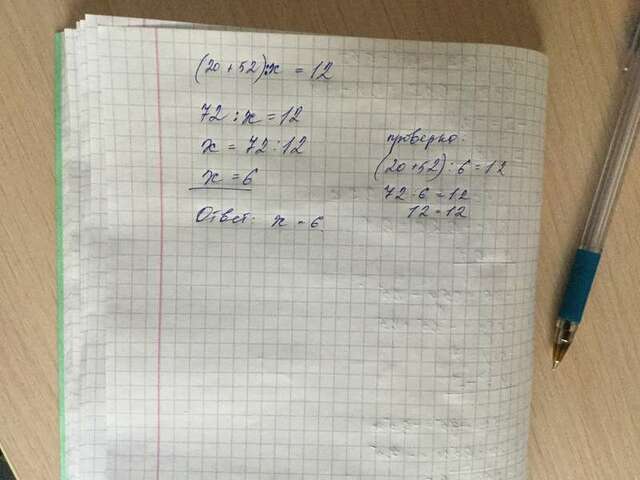 (20 + 52) : x = 12
72 : x = 12
x = 72 : 12
x = 6
Ответ: x = 6
проверка:
(20 + 52) : 6 = 12
72 : 6 = 12
12 = 12